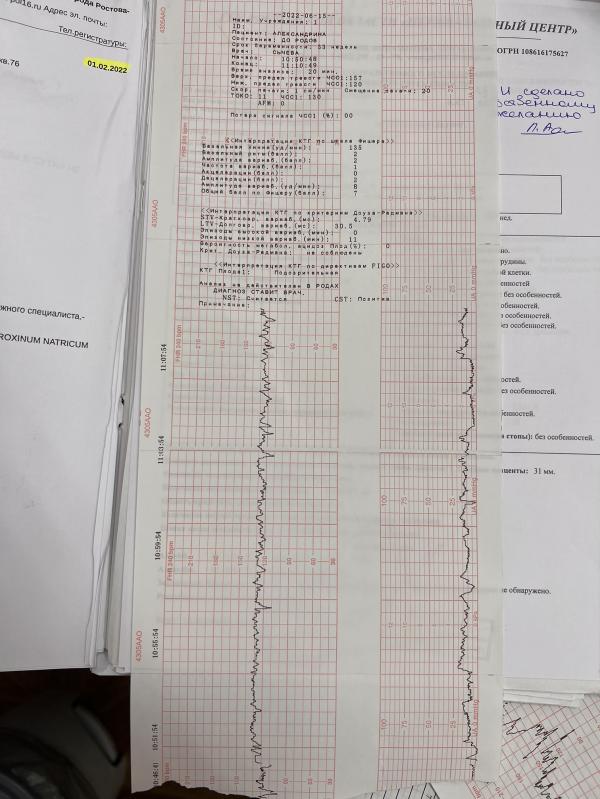 рода Ростова-
pol16.ru Адрес эл. почты:
Тел.регистратуры:
кв.76
01.02.2022
жного специалиста,-
ROXINUM NATRICUM
4305AAO
--2022-06-15--
Наим. Учреждения: 1
ID:
Пациент: АЛЕКСАНДРИНА
Состояние: ДО РОДОВ
Срок беременности: 33 недели
Врач: СЫЧЕВА
Начало: 10:50:48
Конец: 11:10:49
Время анализа: 20 мин.
Верх. предел тревоги ЧСС1:157
Ниж. предел тревоги ЧСС1:120
Скор. печати: 1 см/мин Смещение печати: 20
ТОКО: 11 ЧСС1: 130
AFM: 0
Потеря сигнала ЧСС1 (%): 00
<<Интерпретация КТГ по шкале Фишера>>
Базальная линия(уд/мин): 135
Базальный ритм(балл): 2
Амплитуда вариаб.(балл): 2
Частота вариаб.(балл): 1
Акцелерации(балл): 0
Децелерации(балл): 2
Амплитуда вариаб.(уд/мин): 8
Общий балл по Фишеру(балл): 7
<<Интерпретация КТГ по критериям Доуза-Редмана>>
STV-Кратковр. вариаб.(мс): 4.79
LTV-Долговр. вариаб.(мс): 30.5
Эпизоды высокой вариаб.(мин): 0
Эпизоды низкой вариаб.(мин): 11
Вероятность метабол. ацидоз Плода(%): 0
Крит. Доуза-Редмана: не соблюдены
<<Интерпретация КТГ по директивам FIGO>>
КТГ Плода1: Подозрительная
Анализ не действителен В РОДАХ
ДИАГНОЗ СТАВИТ ВРАЧ.
NST: Считается CST: Политика
Примечание:
11:07:54
4305AAO
11:03:54
10:59:54
4305AAO
10:55:54
10:51:54
FHR 240 bpm
210
UA 0 mmHg
100
75
50
25
НЫЙ ЦЕНТР»
ОГРН 108616175627
И сделано
желанию
но.
рудины.
й клетки.
енностей
без особенностей.
обенностей.
без особенностей.
ез особенностей.
остей.
ез особенностей.
енностей.
стопы): без особенностей.
центы: 31 мм.
не обнаружено.